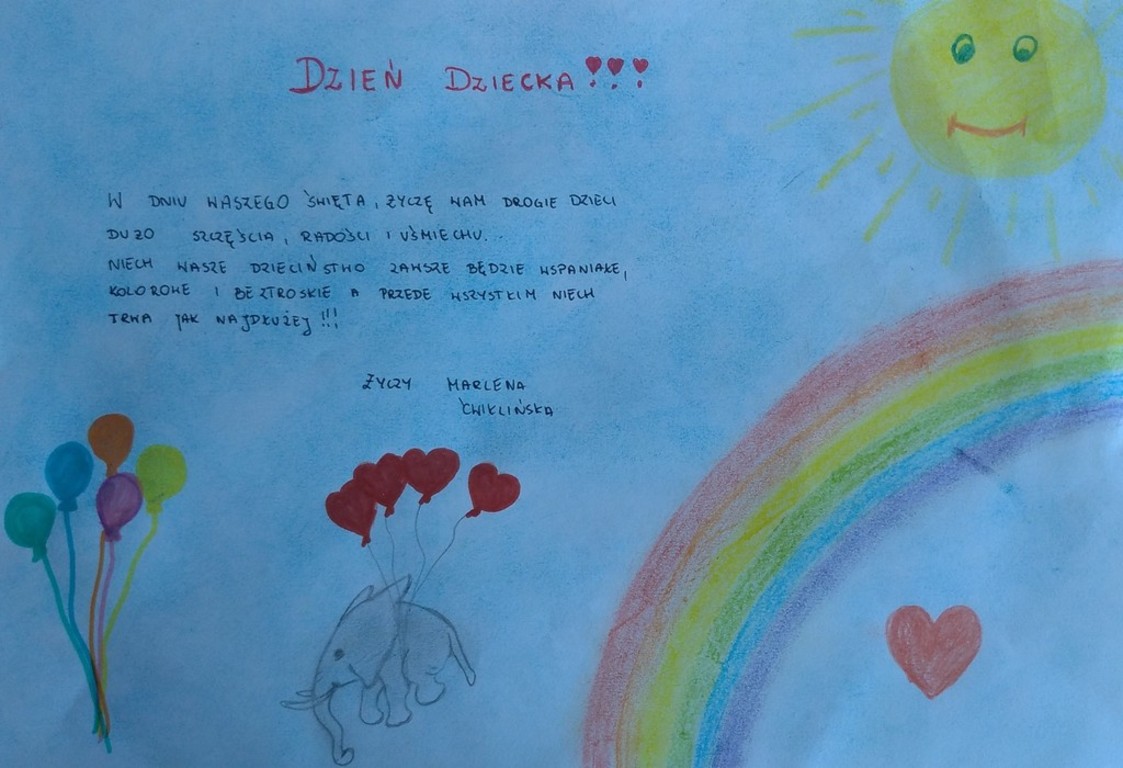 DZIEŃ DZIECKA!!!
W DNIU WASZEGO ŚWIĘTA, ŻYCZĘ WAM DROGIE DZIECI
DUŻO SZCZĘŚCIA, RADOŚCI I UŚMIECHU.
NIECH WASZE DZIECIŃSTWO ZAWSZE BĘDZIE WSPANIAŁE,
KOLOROWE I BEZTROSKIE A PRZEDE WSZYSTKIM NIECH
TRWA JAK NAJDŁUŻEJ!!!
ŻYCZY MARLENA
ĆWIKLIŃSKA